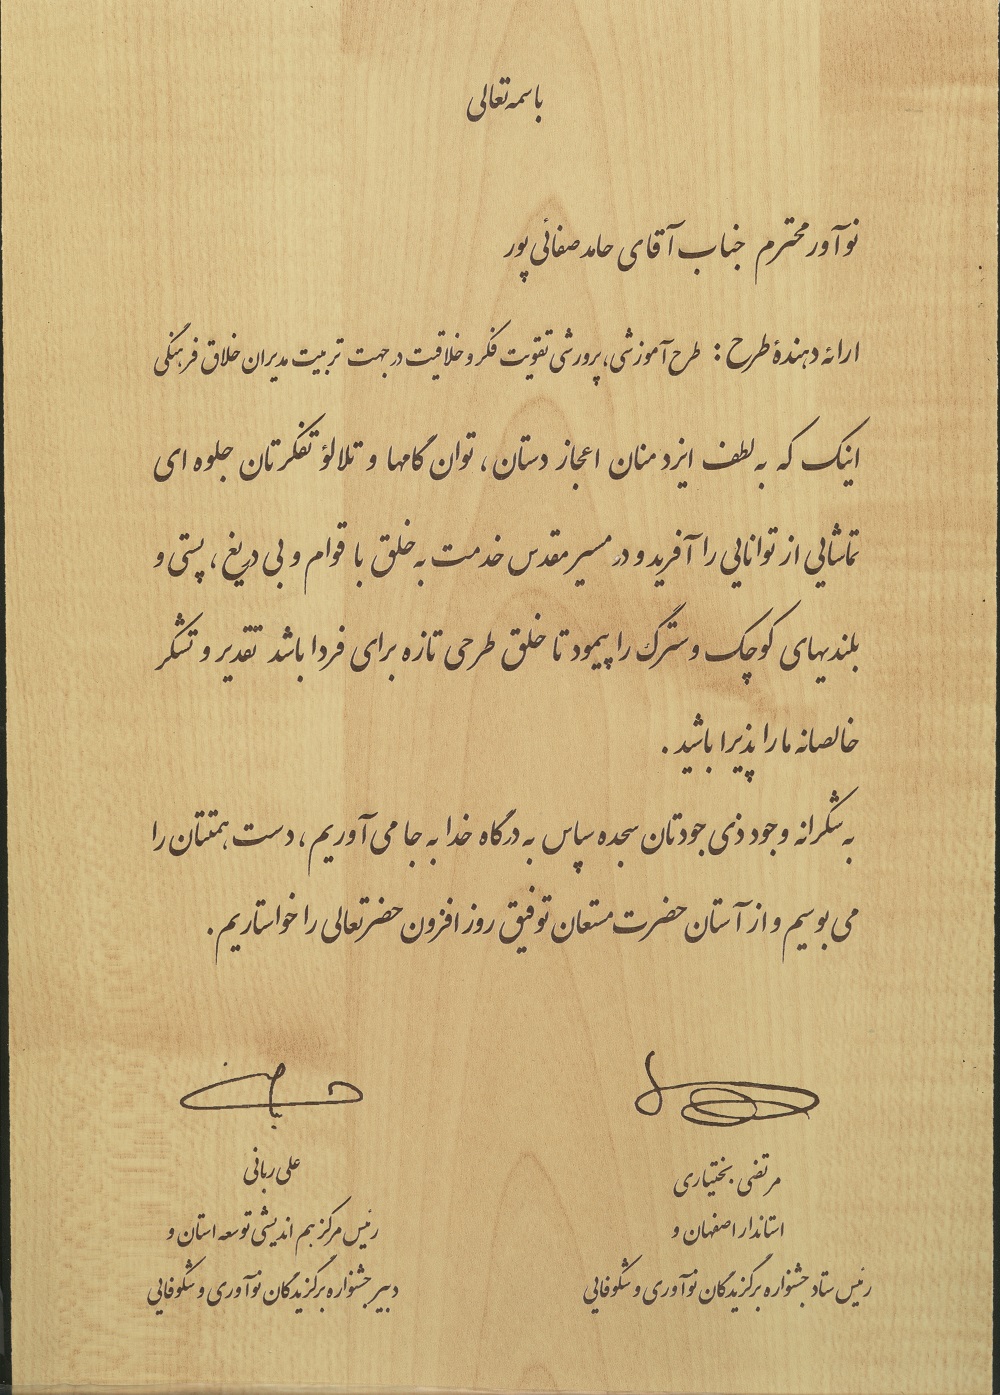 باسمه تعالی
نوآور محترم جناب آقای حامد صفائی پور
ارائه دهندهٔ طرح : طرح آموزشی، پرورشی تقویت فکر و خلاقیت در جهت تربیت مدیران خلاق فرهنگی
اینک که به لطف ایزد منان اعجاز دستان ، توان گامها و تلالؤ تفکرتان جلوه ای
تماشایی از توانایی را آفرید و در مسیر مقدس خدمت به خلق با قوام و بی دریغ ، پستی و
بلندیهای کوچک و سترگ را پیمود تا خلق طرحی تازه برای فردا باشد تقدیر و تشکر
خالصانه ما را پذیرا باشید .
به شکرانه وجود ذی جودتان سجده سپاس به درگاه خدا به جا می آوریم ، دست همتتان را
می بوسیم و از آستان حضرت مستعان توفیق روز افزون حضرتعالی را خواستاریم .
مرتضی بختیاری
استاندار اصفهان و
رئیس ستاد جشنواره برگزیدگان نوآوری و شکوفایی
علی ربانی
رئیس مرکز هم اندیشی توسعه استان و
دبیر جشنواره برگزیدگان نوآوری و شکوفایی